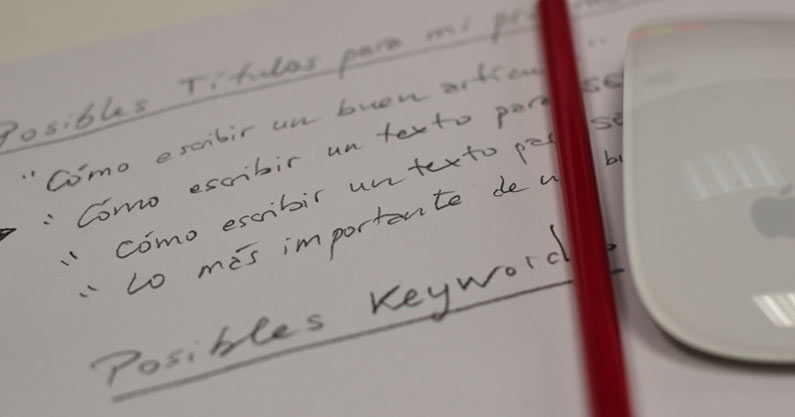 Posibles Títulos para mi
"Cómo escribir un buen
"Cómo escribir un texto para se
"Cómo escribir un texto para se
"Lo más importante de un bu
Posibles Keywords